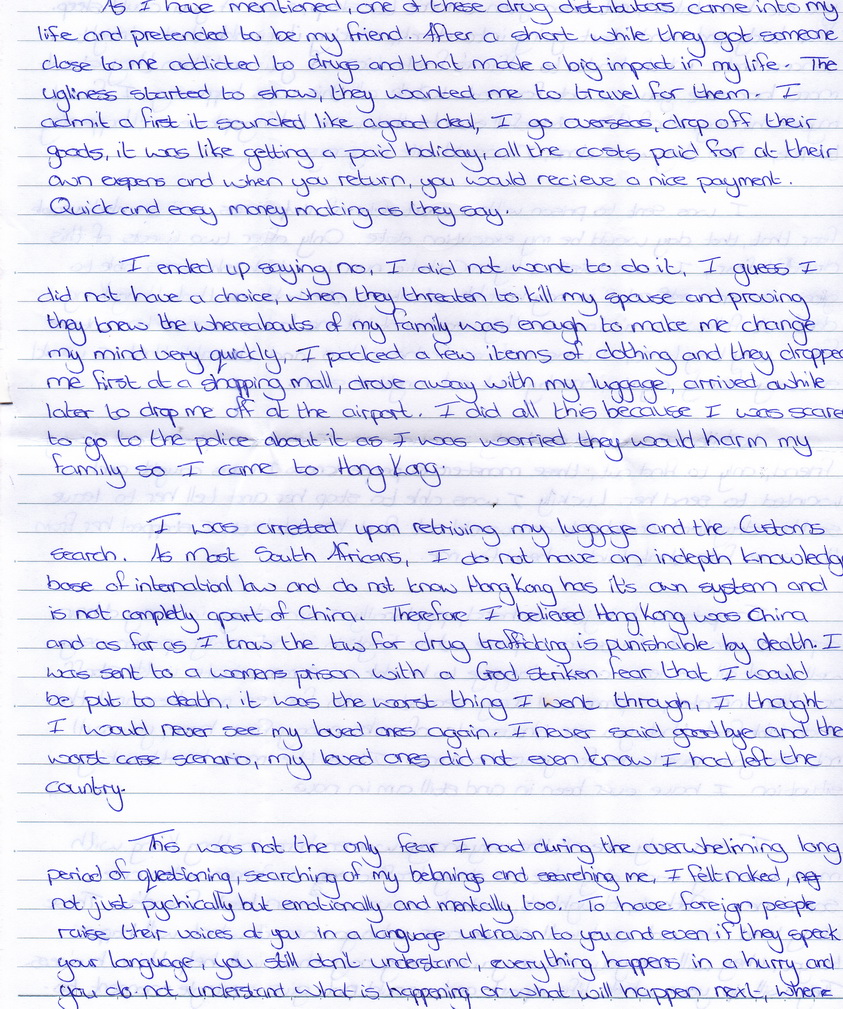 As I have mentioned, one of these drug distributors came into my
life and pretended to be my friend. After a short while they got someone
close to me addicted to drugs and that made a big impact in my life. The
ugliness started to show, they wanted me to travel for them. I
admit a first it sounded like a good deal, I go overseas, drop off their
goods, it was like getting a paid holiday, all the costs paid for at their
own expens and when you return, you would recieve a nice payment.
Quick and easy money making as they say.
I ended up saying no, I did not want to do it, I guess I
did not have a choice, when they threaten to kill my spouse and proving
they knew the whereabouts of my family was enough to make me change
my mind very quickly, I packed a few items of clothing and they droppe
me first at a shopping mall, drove away with my luggage, arrived awhile
later to drop me off at the airport. I did all this because I was scare
to go to the police about it as I was worried they would harm my
family so I came to Hong Kong.
I was arrested upon retriving my luggage and the Customs
search. As most South Africans, I do not have an indepth knowledg
base of internationl law and do not know Hong Kong has it's own system and
is not completly apart of China. Therefore I believed Hong Kong was China
and as far as I know the law for drug trafficking is punishable by death. I
was sent to a womens prison with a God striken fear that I would
be put to death, it was the worst thing I went through, I thought
I would never see my loved ones again. I never said goodbye and the
worst case scenario, my loved ones did not even know I had left the
country.
This was not the only fear I had during the overwhelming long
period of questioning, searching of my belonings and searching me, I felt naked,
not just pychically but emotionally and mentally too. To have foreign people
raise their voices at you in a language unknown to you and even if they speak
your language, you still don't understand, everything happens in a hurry and
you do not understand what is happening or what will happen next, where